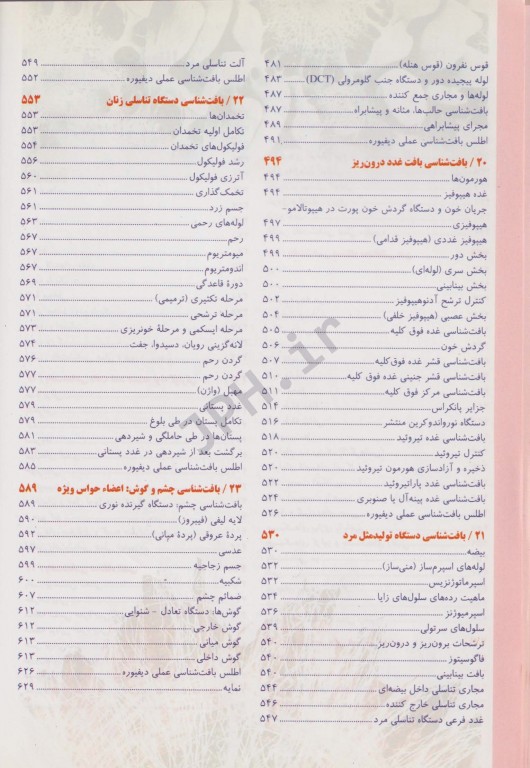 قوس نفرون (قوس هنله) ۴۸۱
لوله پیچیده دور و دستگاه جنب گلومرولی (DCT) ۴۸۳
لوله‌ها و مجاری جمع کننده ۴۸۷
بافت‌شناسی حالب‌ها، مثانه و پیشابراه ۴۸۷
مجرای پیشابراهی ۴۸۹
اطلس بافت‌شناسی عملی دیفیوره ۴۹۱
۲۰ / بافت‌شناسی بافت غدد درون‌ریز ۴۹۴
هورمون‌ها ۴۹۴
غده هیپوفیز ۴۹۴
جریان خون و دستگاه گردش خون پورت در هیپوتالامو-
هیپوفیزی ۴۹۷
هیپوفیز غددی (هیپوفیز قدامی) ۴۹۹
بخش دور ۴۹۹
بخش سری (لوله‌ای) ۵۰۰
بخش بینابینی ۵۰۰
کنترل ترشح آدنوهیپوفیز ۵۰۲
بخش عصبی (هیپوفیز خلفی) ۵۰۴
بافت‌شناسی غده فوق کلیه ۵۰۵
گردش خون ۵۰۶
بافت‌شناسی قشر غده فوق‌کلیه ۵۰۷
بافت‌شناسی قشر جنینی غده فوق کلیه ۵۱۰
بافت‌شناسی مرکز فوق کلیه ۵۱۱
جزایر پانکراس ۵۱۴
دستگاه نورواندوکرین منتشر ۵۱۶
بافت‌شناسی غده تیروئید ۵۱۸
کنترل تیروئید ۵۲۰
ذخیره و آزادسازی هورمون تیروئید ۵۲۰
بافت‌شناسی غدد پاراتیروئید ۵۲۲
بافت‌شناسی غده پینه‌آل یا صنوبری ۵۲۴
اطلس بافت‌شناسی عملی دیفیوره ۵۲۶
۲۱ / بافت‌شناسی دستگاه تولیدمثل مرد ۵۳۰
بیضه ۵۳۰
لوله‌های اسپرم‌ساز (منی‌ساز) ۵۳۲
اسپرماتوژنزیس ۵۳۲
ماهیت رده‌های سلول‌های زایا ۵۳۴
اسپرمیوژنز ۵۳۶
سلول‌های سرتولی ۵۳۹
ترشحات برون‌ریز و درون‌ریز ۵۴۰
فاگوسیتوز ۵۴۰
بافت بینابینی ۵۴۰
مجاری تناسلی داخل بیضه‌ای ۵۴۴
مجاری تناسلی خارج کننده ۵۴۶
غدد فرعی دستگاه تناسلی مرد ۵۴۷
آلت تناسلی مرد ۵۴۹
اطلس بافت‌شناسی عملی دیفیوره ۵۵۲
۲۲ / بافت‌شناسی دستگاه تناسلی زنان ۵۵۳
تخمدان‌ها ۵۵۳
تکامل اولیه تخمدان ۵۵۳
فولیکول‌های تخمدان ۵۵۴
رشد فولیکول ۵۵۶
آترزی فولیکول ۵۶۰
تخمک‌گذاری ۵۶۱
جسم زرد ۵۶۱
لوله‌های رحمی ۵۶۳
رحم ۵۶۷
میومتریوم ۵۶۷
اندومتریوم ۵۶۷
دورهٔ قاعدگی ۵۶۹
مرحله تکثیری (ترمیمی) ۵۷۱
مرحله ترشحی ۵۷۱
مرحله ایسکمی و مرحلهٔ خونریزی ۵۷۳
لانه‌گزینی رویان، دسیدوا، جفت ۵۷۴
گردن رحم ۵۷۶
گردن رحم ۵۷۷
مهبل (واژن) ۵۷۷
غدد پستانی ۵۷۹
تکامل پستان در طی بلوغ ۵۷۹
پستان‌ها در طی حاملگی و شیردهی ۵۸۱
برگشت بعد از شیردهی در غدد پستانی ۵۸۳
اطلس بافت‌شناسی عملی دیفیوره ۵۸۵
۲۳ / بافت‌شناسی چشم و گوش: اعضاء حواس ویژه ۵۸۹
بافت‌شناسی چشم: دستگاه گیرنده نوری ۵۸۹
لایه لیفی (فیبروز) ۵۹۰
پردهٔ عروقی (پردهٔ میانی) ۵۹۲
عدسی ۵۹۷
جسم زجاجیه ۵۹۹
شبکیه ۶۰۰
ضمائم چشم ۶۰۷
گوش‌ها: دستگاه تعادل - شنوایی ۶۱۲
گوش خارجی ۶۱۲
گوش میانی ۶۱۳
گوش داخلی ۶۱۳
اطلس بافت‌شناسی عملی دیفیوره ۶۲۶
نمایه ۶۲۹
JPH.ir